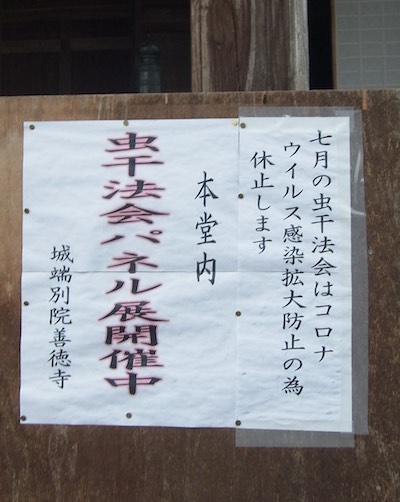 七月の虫干法会はコロナ
ウイルス感染拡大防止の為
休止します
本堂内
虫干法会パネル展開催中
城端別院善徳寺